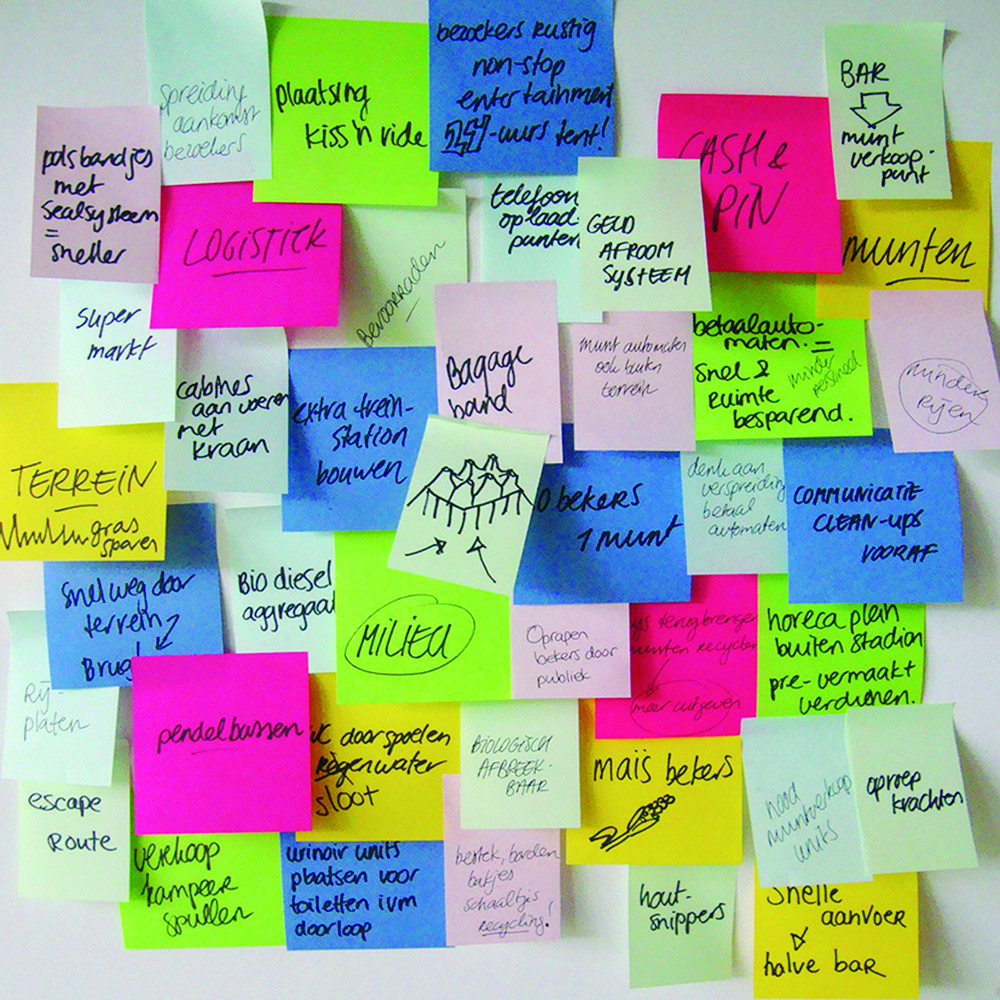 spreiding
aankomst
bezoekers
plaatsing
kiss 'n ride
bezoekers rustig
non-stop
entertainment
-uurs tent!
BAR
munt
verkoop-
punt
CASH &
PIN
polsbandjes
met
sealsysteem
=
sneller
LOGISTIEK
Bevoorraden
telefoon
oplaad
punten
GELD
AFROOM
SYSTEEM
munten
super
markt
cabines
aan voeren
met
kraan
extra trein-
station
bouwen
Bagage
band
munt automaten
ook buiten
terrein
betaalauto-
maten. =
snel &
ruimte
besparend.
minder
personeel
minder
rijen
TERREIN
gras
sparen
0 bekers
1 munt
denk aan
verspreiding
betaal
automaten
COMMUNICATIE
CLEAN-UPS
VOORAF
snelweg door
terrein
Brug
Bio diesel
aggregaat
MILIEU
Oprapen
bekers door
publiek
terugbrengen
munten recyclen
meer uitgeven
horeca plein
buiten stadion
pre-vermaakt
verdienen.
Rij-
platen
pendelbussen
WC doorspoelen
Regenwater
sloot
BIOLOGISCH
AFBREEK-
BAAR
maïs bekers
nood
muntverkoop
units
oproep
krachten
escape
Route
verkoop
kampeer
spullen
urinoir units
plaatsen voor
toiletten ivm
doorloop
bestek, borden
bakjes
schaaltjes
recycling!
hout-
snippers
Snelle
aanvoer
halve bar